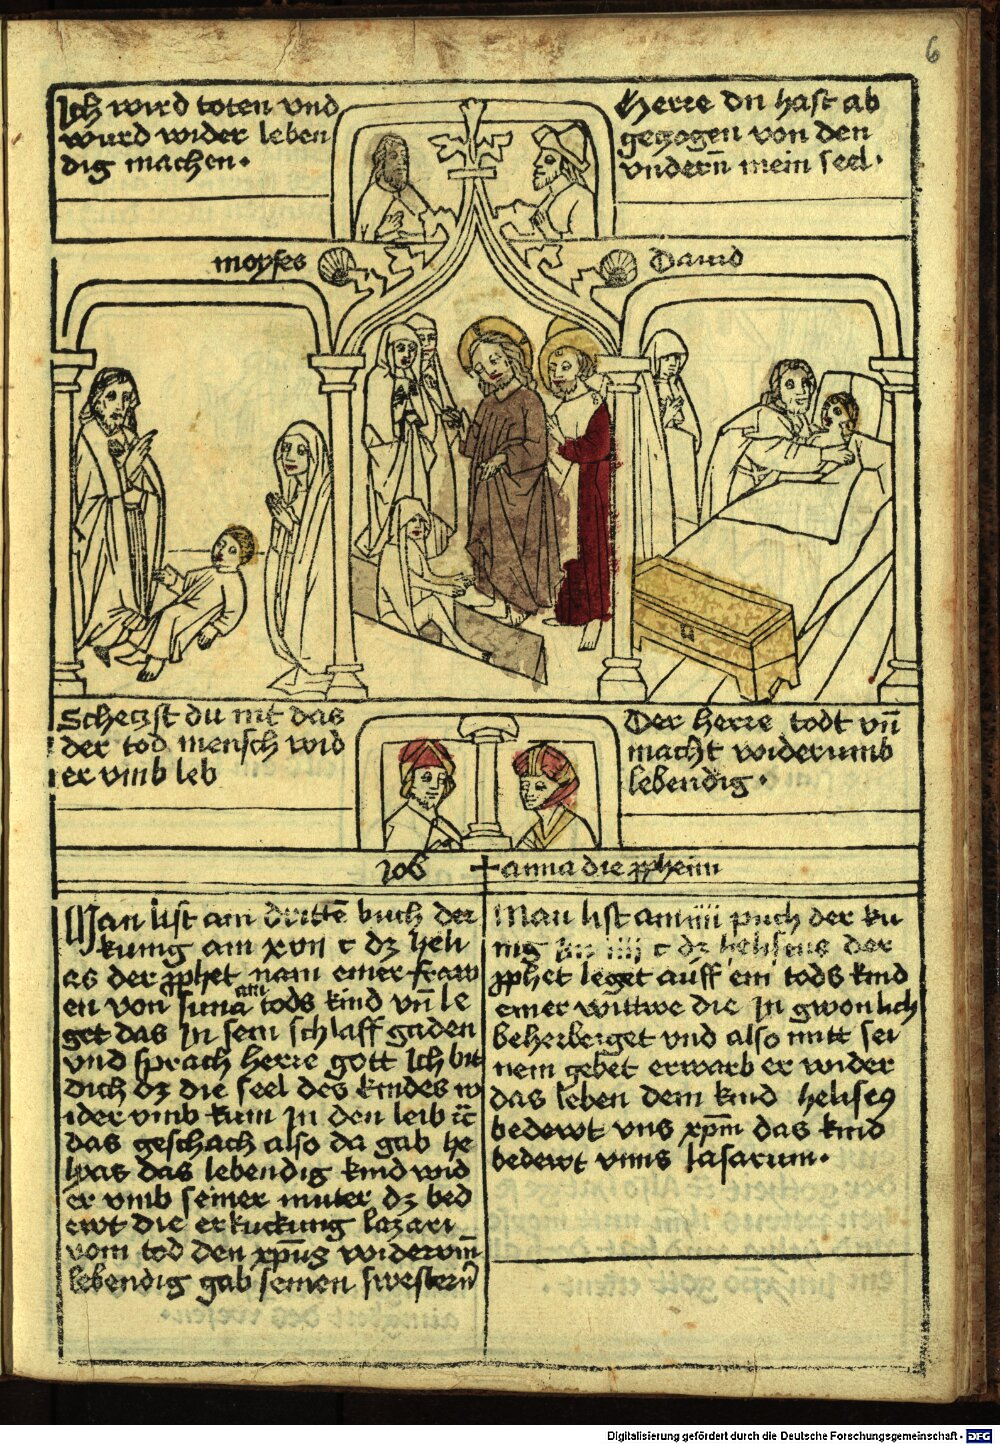 6
Ich wird toten vnd
wurd wider leben
dig machen.
Herre du hast ab
gezogen von den
vndern̄ mein seel.
moyses
Dauid
Scheczst du nit das
der tod mensch wid
er vmb leb
Der herre todt vn̄
macht widerumb
lebendig.
Job
anna die ꝓphetin
Man list am dritte͂ buch der
kunig am xvii c dz heli
as der ꝓphet nam einer fraw
en von suna ain tods kind vn̄ le
get das In sein schlaff gaden
vnd sprach herre gott Ich bit
dich dz die seel des kindes w
ider vmb kum In den leib ꝛc
das geschach also da gab he
lyas das lebendig kind wid
er vmb seiner muter dz bed
ewt die erkuckung lazari
vom tod den xp̄us widervm̄
lebendig gab seinen swestern
Man list am iiii puch der ku
nig Im iiii c dz heliseus der
ꝓphet leget auff ein tods kind
einer wittwe die In gwonlich
beherberget vnd also mitt sei
nem gebet erwarb er wider
das leben dem kind heliseꝰ
bedewt vns xp̄m das kind
bedewt vnns lasarum.
Digitalisierung gefördert durch die Deutsche Forschungsgemeinschaft - DFG